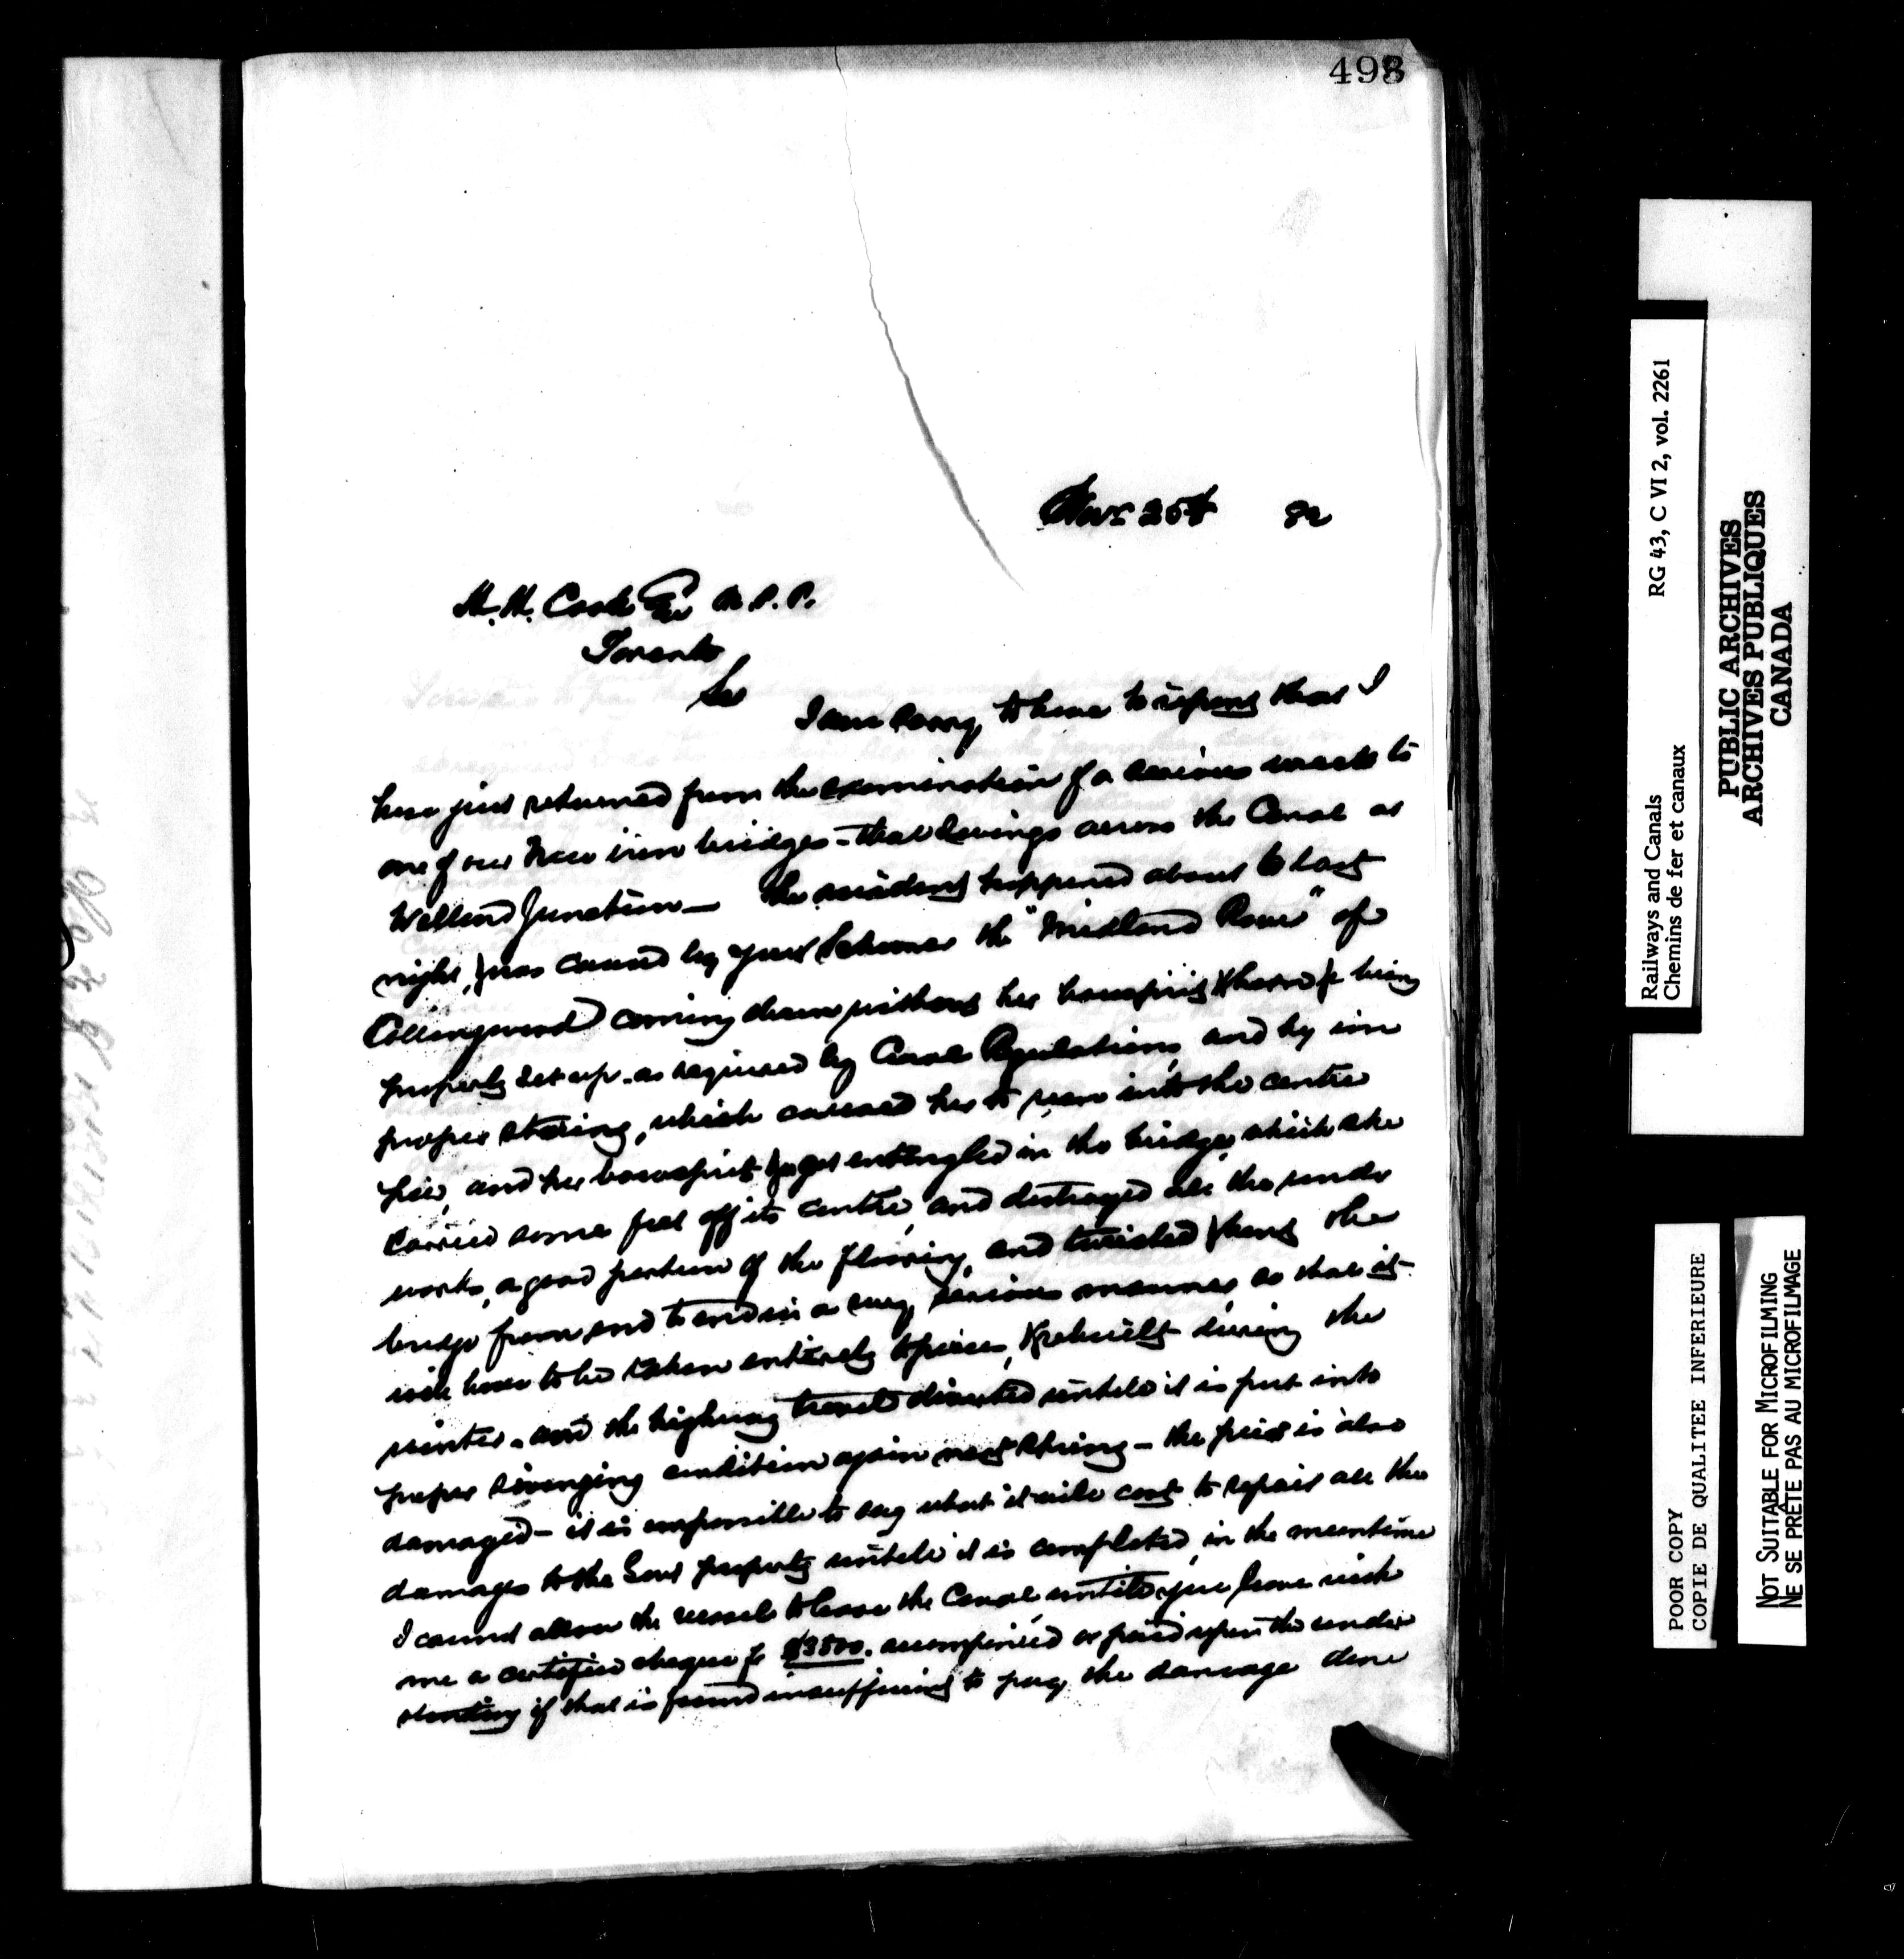 498
Novr 25th 82
H. H. Cook Esq M.P.P.
Toronto
Sir
I am sorry to have to report that I
have just returned from the examination of a serious wreck to
one of our new iron bridges - that swings across the Canal at
Welland Junction - The accident happened about 6 last
night, & was caused by your Schooner the "Midland Rover" of
Collingwood coming down without her bowsprit being
properly set up - as required by Canal Regulations, and by im
proper steering, which caused her to run into the centre
pier, and her bowsprit to get entangled in the bridge, which she
carried some feet off its centre, and destroyed all the under
works, a good portion of the flooring, and twisted the
bridge from end to end in a very serious manner so that it
will have to be taken entirely to pieces, & rebuilt during the
winter - and the highway travel diverted until it is put into
proper swinging condition again next Spring - the pier is also
damaged - it is impossible to say what it will cost to repair all the
damages to the Govt property until it is completed, in the meantime
I cannot allow the vessel to leave the Canal until you leave with
me a certified cheque for $3500. accompanied or paid upon the under
standing if that is found insufficient to pay the damage done
Railways and Canals RG 43, C VI 2, vol. 2261
Chemins de fer et canaux
PUBLIC ARCHIVES
ARCHIVES PUBLIQUES
CANADA
POOR COPY
COPIE DE QUALITEE INFERIEURE
NOT SUITABLE FOR MICROFILMING
NE SE PRÊTE PAS AU MICROFILMAGE